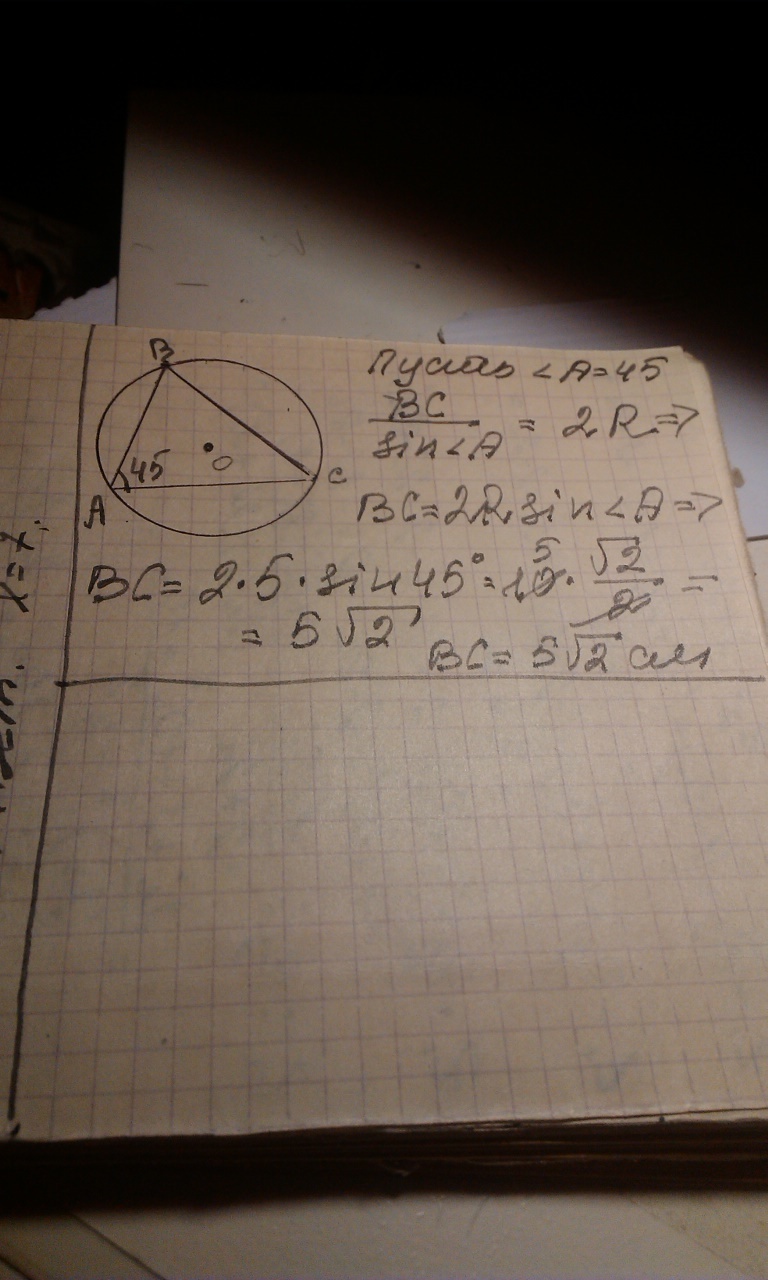 B
45
O
A
C
Пусть <A=45
BC/sin<A = 2R=>
BC=2R sin<A=>
BC= 2·5·sin45°=10· 5 √2/2 =
= 5√2
BC= 5√2 см
x=7.